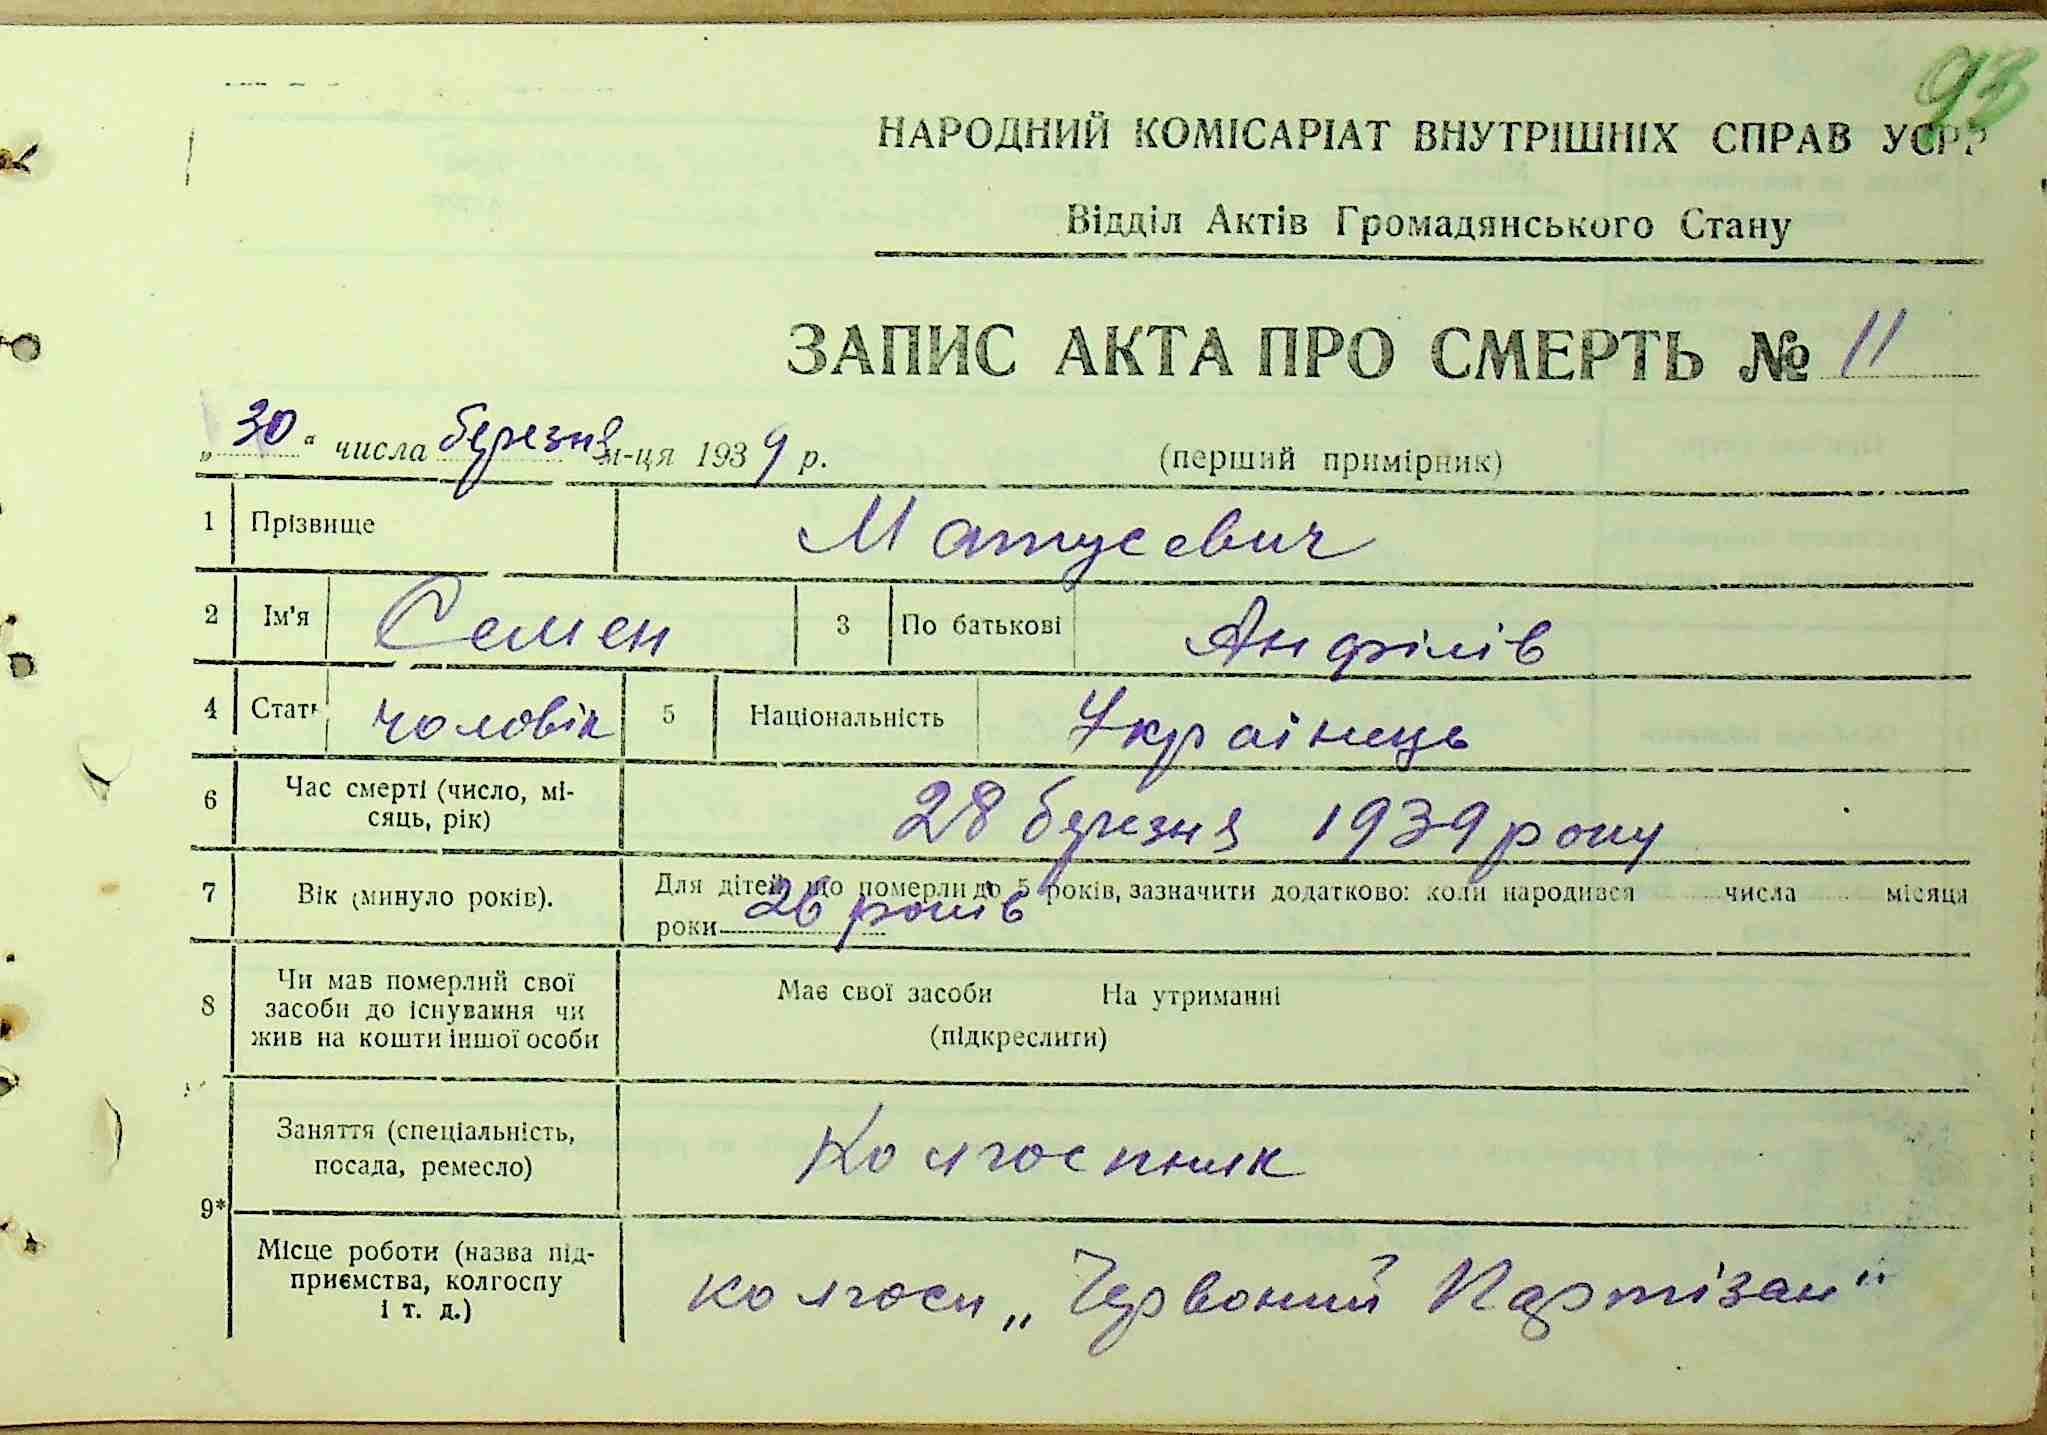 93
НАРОДНИЙ КОМІСАРІАТ ВНУТРІШНІХ СПРАВ УСРР
Відділ Актів Громадянського Стану
ЗАПИС АКТА ПРО СМЕРТЬ № 11
„30“ числа березня м-ця 1939 р. (перший примірник)
1 Прізвище Матусевич
2 Ім'я Семен 3 По батькові Анфілів
4 Стать чоловік 5 Національність Українець
6 Час смерті (число, мі-
сяць, рік) 28 березня 1939 року
7 Вік (минуло років). Для дітей, що померли до 5 років, зазначити додатково: коли народився числа місяця
роки 26 років
8 Чи мав померлий свої
засоби до існування чи
жив на кошти іншої особи
Має свої засоби На утриманні
(підкреслити)
9* Заняття (спеціальність,
посада, ремесло) Колгоспник
Місце роботи (назва під-
приємства, колгоспу
і т. д.) колгосп „Червоний Партізан"